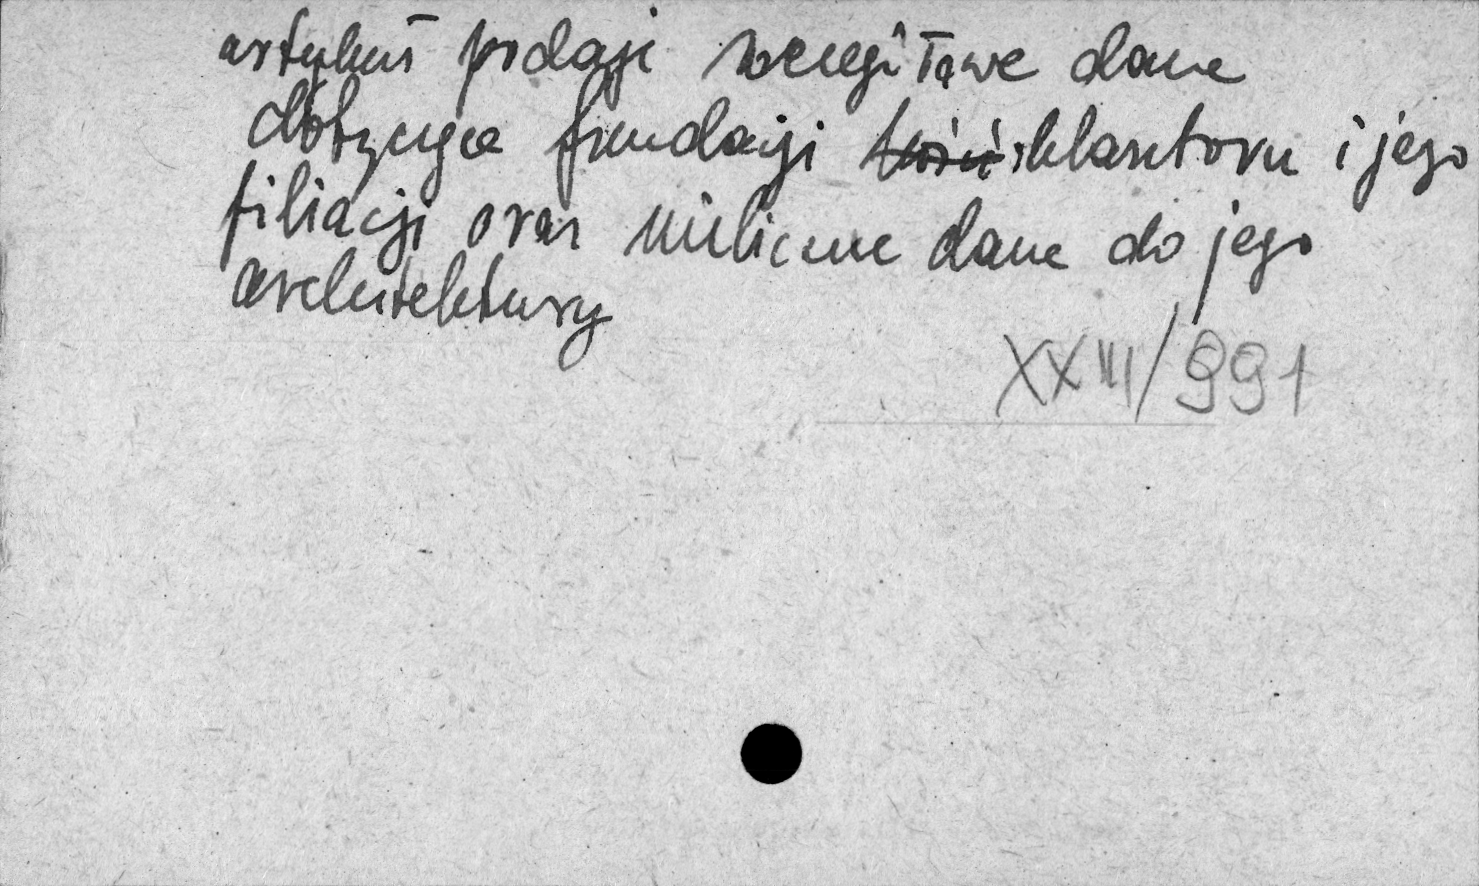 artykuł podaje szczegółowe dane
dotyczące fundacji klasztoru i jego
filiacji oraz nieliczne dane do jego
architektury
XXIII/991